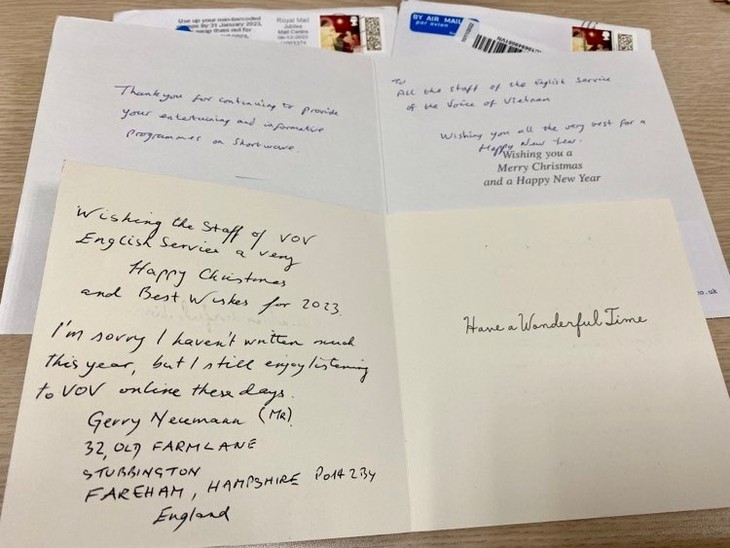 Use up your non-barcoded
by 31 January 2023,
swap them out for
Royal Mail
Jubilee
Mail Centre
BY AIR MAIL
par avion
Thankyou for continuing to provide
your entertaining and informative
programmes on Shortwave.
To
All the staff of the English Service
of the Voice of Vietnam
Wishing you all the very best for a
Happy New Year.
Wishing you a
Merry Christmas
and a Happy New Year
Wishing the Staff of VOV
English Service a very
Happy Christmas
and Best Wishes for 2023.
I'm sorry I haven't written much
this year, but I still enjoy listening
to VOV online these days.
Gerry Neumann (MR)
32, OLD FARM LANE
STUBBINGTON
FAREHAM, HAMPSHIRE PO14 2BY
England
Have a Wonderful Time
.co.uk